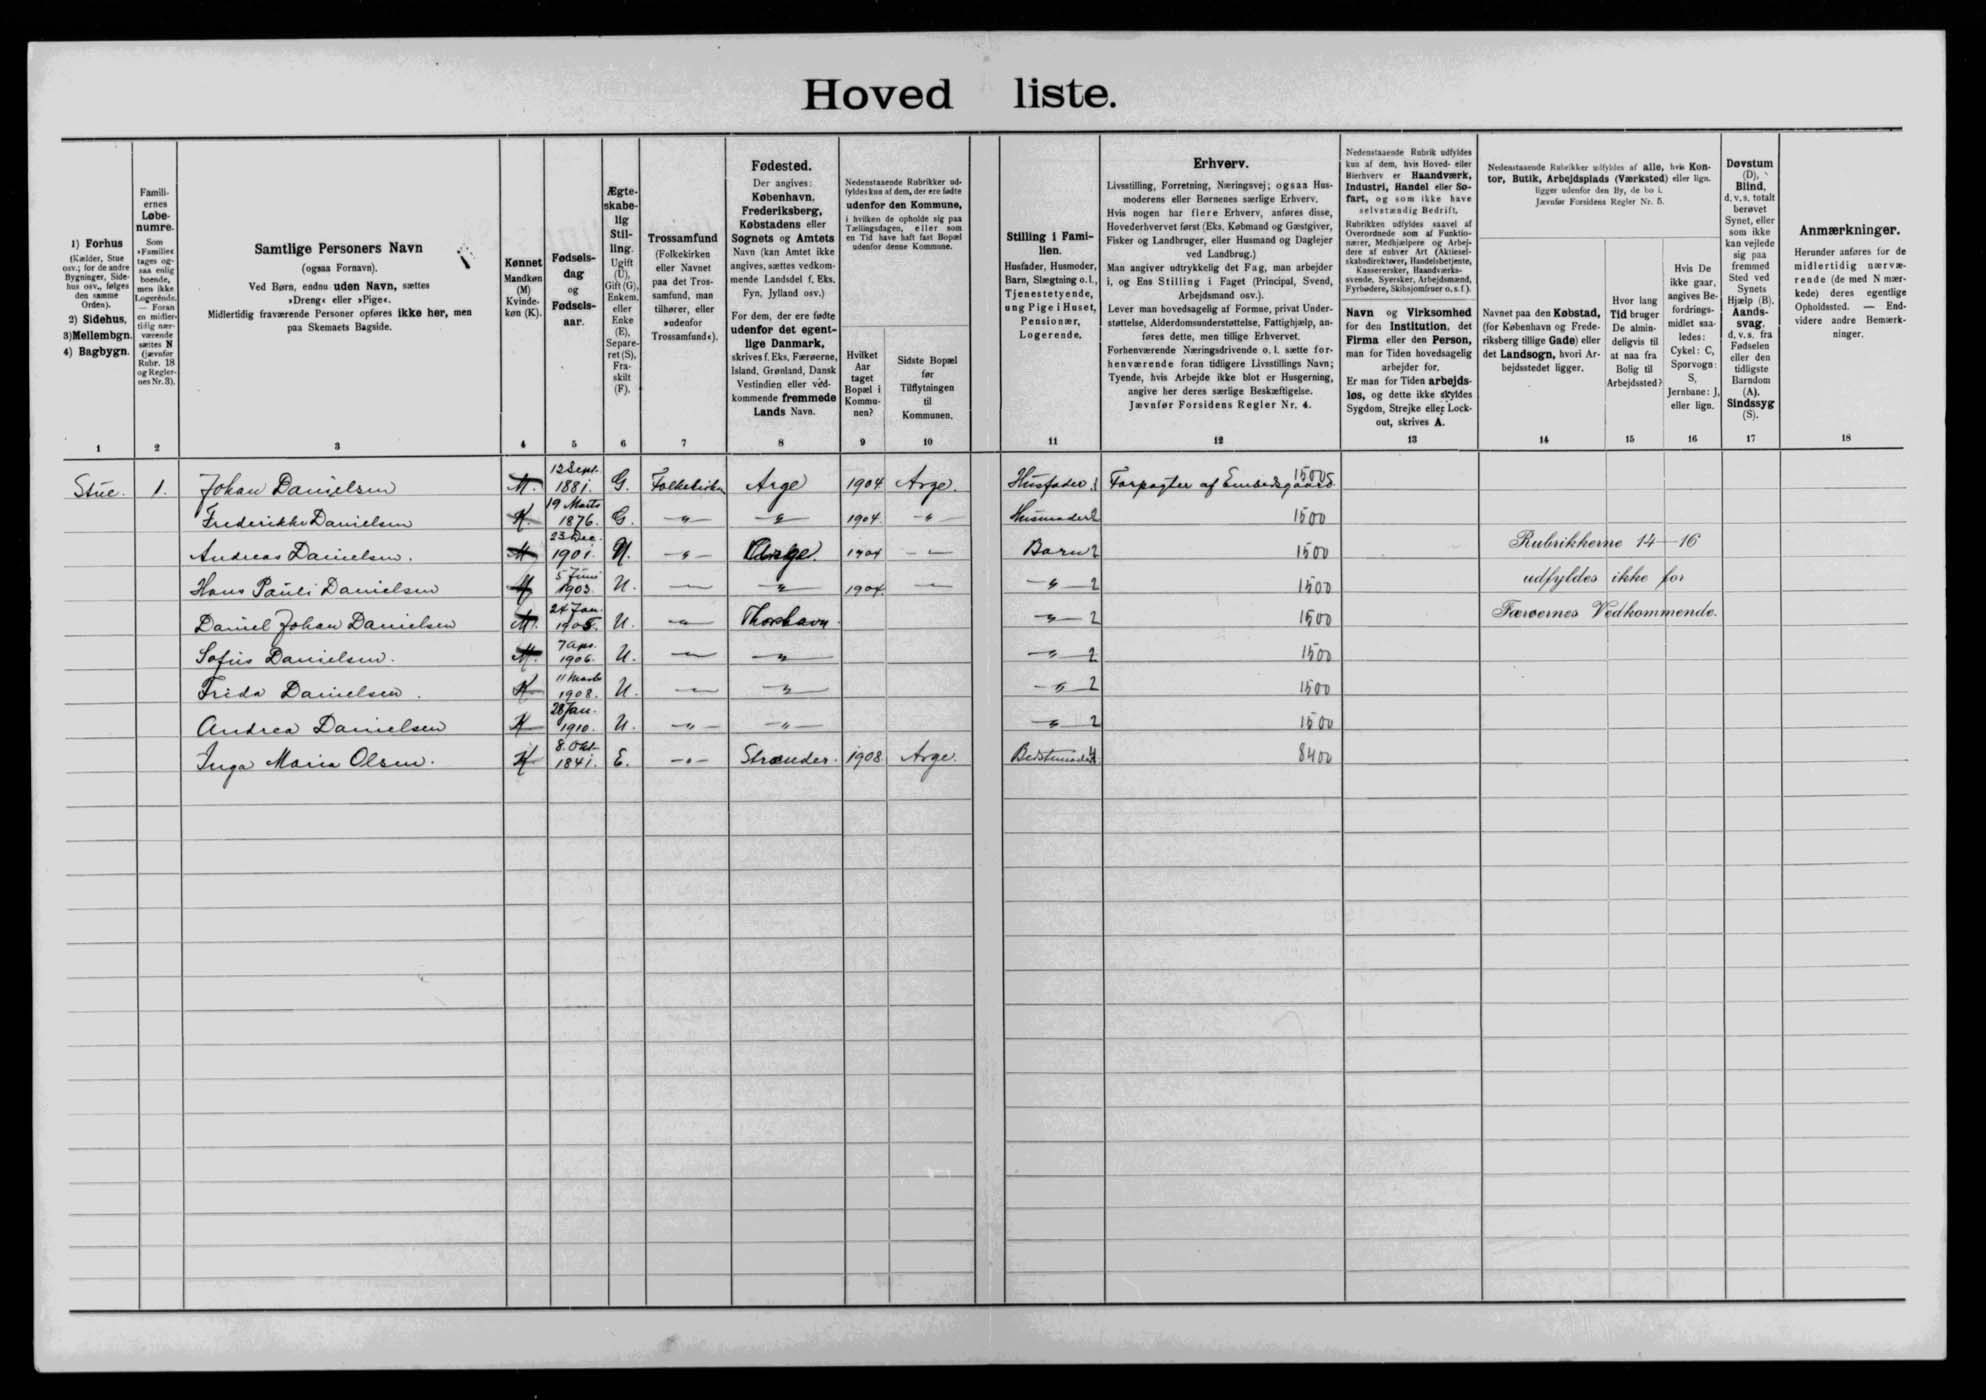 Hoved liste.
1) Forhus
(Kælder, Stue
osv.; for de andre
Bygninger, Side-
hus osv., følges
den samme
Orden).
2) Sidehus.
3) Mellembgn.
4) Bagbygn.
1
Famili-
ernes
Løbe-
numre.
Som
»Familie«
tages og-
saa enlig
boende,
men ikke
Logerende.
— Foran
en midler-
tidig nær-
værende
sættes N
(jævnfør
Rubr. 18
og Regler-
nes Nr. 3).
2
Samtlige Personers Navn
(ogsaa Fornavn).
Ved Børn, endnu uden Navn, sættes
»Dreng« eller »Pige«.
Midlertidig fraværende Personer opføres ikke her, men
paa Skemaets Bagside.
3
Kønnet
Mandkøn
(M)
Kvinde-
køn (K).
4
Fødsels-
dag
og
Fødsels-
aar.
5
Ægte-
skabe-
lig
Stil-
ling.
Ugift
(U),
Gift (G),
Enkem.
eller
Enke
(E),
Separe-
ret (S),
Fra-
skilt
(F).
6
Trossamfund
(Folkekirken
eller Navnet
paa det Tros-
samfund, man
tilhører, eller
»udenfor
Trossamfund«).
7
Fødested.
Der angives:
København,
Frederiksberg,
Købstadens eller
Sognets og Amtets
Navn (kan Amtet ikke
angives, sættes vedkom-
mende Landsdel f. Eks.
Fyn, Jylland osv.)
For dem, der ere fødte
udenfor det egent-
lige Danmark,
skrives f. Eks. Færøerne,
Island, Grønland, Dansk
Vestindien eller ved-
kommende fremmede
Lands Navn.
8
Nedenstaaende Rubrikker ud-
fyldes kun af dem, der ere fødte
udenfor den Kommune,
i hvilken de opholde sig paa
Tællingsdagen, eller som
en Tid have haft fast Bopæl
udenfor denne Kommune.
Hvilket
Aar
taget
Bopæl i
Kommu-
nen?
9
Sidste Bopæl
før
Tilflytningen
til
Kommunen.
10
Stilling i Fami-
lien.
Husfader, Husmoder,
Barn, Slægtning o. l.,
Tjenestetyende,
ung Pige i Huset,
Pensionær,
Logerende.
11
Erhverv.
Livsstilling, Forretning, Næringsvej; ogsaa Hus-
moderens eller Børnenes særlige Erhverv.
Hvis nogen har flere Erhverv, anføres disse,
Hovederhvervet først (Eks. Købmand og Gæstgiver,
Fisker og Landbruger, eller Husmand og Daglejer
ved Landbrug.)
Man angiver udtrykkelig det Fag, man arbejder
i, og Ens Stilling i Faget (Principal, Svend,
Arbejdsmand osv.).
Lever man hovedsagelig af Formue, privat Under-
støttelse, Alderdomsunderstøttelse, Fattighjælp, an-
føres dette, men tillige Erhvervet.
Forhenværende Næringsdrivende o. l. sætte for-
henværende foran tidligere Livsstillings Navn;
Tyende, hvis Arbejde ikke blot er Husgerning,
angive her deres særlige Beskæftigelse.
Jævnfør Forsidens Regler Nr. 4.
12
Nedenstaaende Rubrik udfyldes
kun af dem, hvis Hoved- eller
Bierhverv er Haandværk,
Industri, Handel eller Sø-
fart, og som ikke have
selvstændig Bedrift.
Rubrikken udfyldes saavel af
Overordnede som af Funktio-
nærer, Medhjælpere og Arbej-
dere af enhver Art (Aktiesel-
skabsdirektører, Handelsbetjente,
Kasserersker, Haandværks-
svende, Syersker, Arbejdsmænd,
Fyrbødere, Skibsjomfruer o. s. f.).
Navn og Virksomhed
for den Institution, det
Firma eller den Person,
man for Tiden hovedsagelig
arbejder for.
Er man for Tiden arbejds-
løs, og dette ikke skyldes
Sygdom, Strejke eller Lock-
out, skrives A.
13
Nedenstaaende Rubrikker udfyldes af alle, hvis Kon-
tor, Butik, Arbejdsplads (Værksted) eller lign.
ligger udenfor den By, de bo i.
Jævnfør Forsidens Regler Nr. 5.
Navnet paa den Købstad,
(for København og Frede-
riksberg tillige Gade) eller
det Landsogn, hvori Ar-
bejdsstedet ligger.
14
Hvor lang
Tid bruger
De almin-
deligvis til
at naa fra
Bolig til
Arbejdssted?
15
Hvis De
ikke gaar,
angives Be-
fordrings-
midlet saa-
ledes:
Cykel: C,
Sporvogn:
S,
Jernbane: J,
eller lign.
16
Døvstum
(D),
Blind,
d. v. s. totalt
berøvet
Synet, eller
som ikke
kan vejlede
sig paa
fremmed
Sted ved
Synets
Hjælp (B).
Aands-
svag,
d. v. s. fra
Fødselen
eller den
tidligste
Barndom
(A).
Sindssyg
(S).
17
Anmærkninger.
Herunder anføres for de
midlertidig nærvæ-
rende (de med N mær-
kede) deres egentlige
Opholdssted. — End-
videre andre Bemærk-
ninger.
18
Stue. 1. Johan Danielsen M. 12 Sept. 1881. G. Folkekirken Arge 1904 Arge. Husfader 1 Forpagter af Embedsgaard 1500
Frederikke Danielsen K. 19 Marts 1876. G. —„— —„— 1904. —„— Husmoder 2 1500
Andreas Danielsen. M 23 Dec. 1901. U. —„— Arge. 1904 —„— Barn 2 1500
Hans Pauli Danielsen M 5 Juni 1903. U. —„— —„— 1904. —„— —„— 2 1500
Daniel Johan Danielsen M. 24 Jan. 1905. U. —„— Thorshavn. —„— 2 1500
Sofus Danielsen. M. 7 Apr. 1906. U. —„— —„— —„— 2 1500
Frida Danielsen. K 11 Marts 1908. U. —„— —„— —„— 2 1500
Andrea Danielsen K 28 Jan. 1910. U. —„— —„— —„— 2 1500
Inga Maria Olsen. K 8. Okt. 1841. E. —„— Strænder. 1908 Arge. Bedstemoder 4 8400
Rubrikkerne 14—16
udfyldes ikke for
Færøernes Vedkommende.